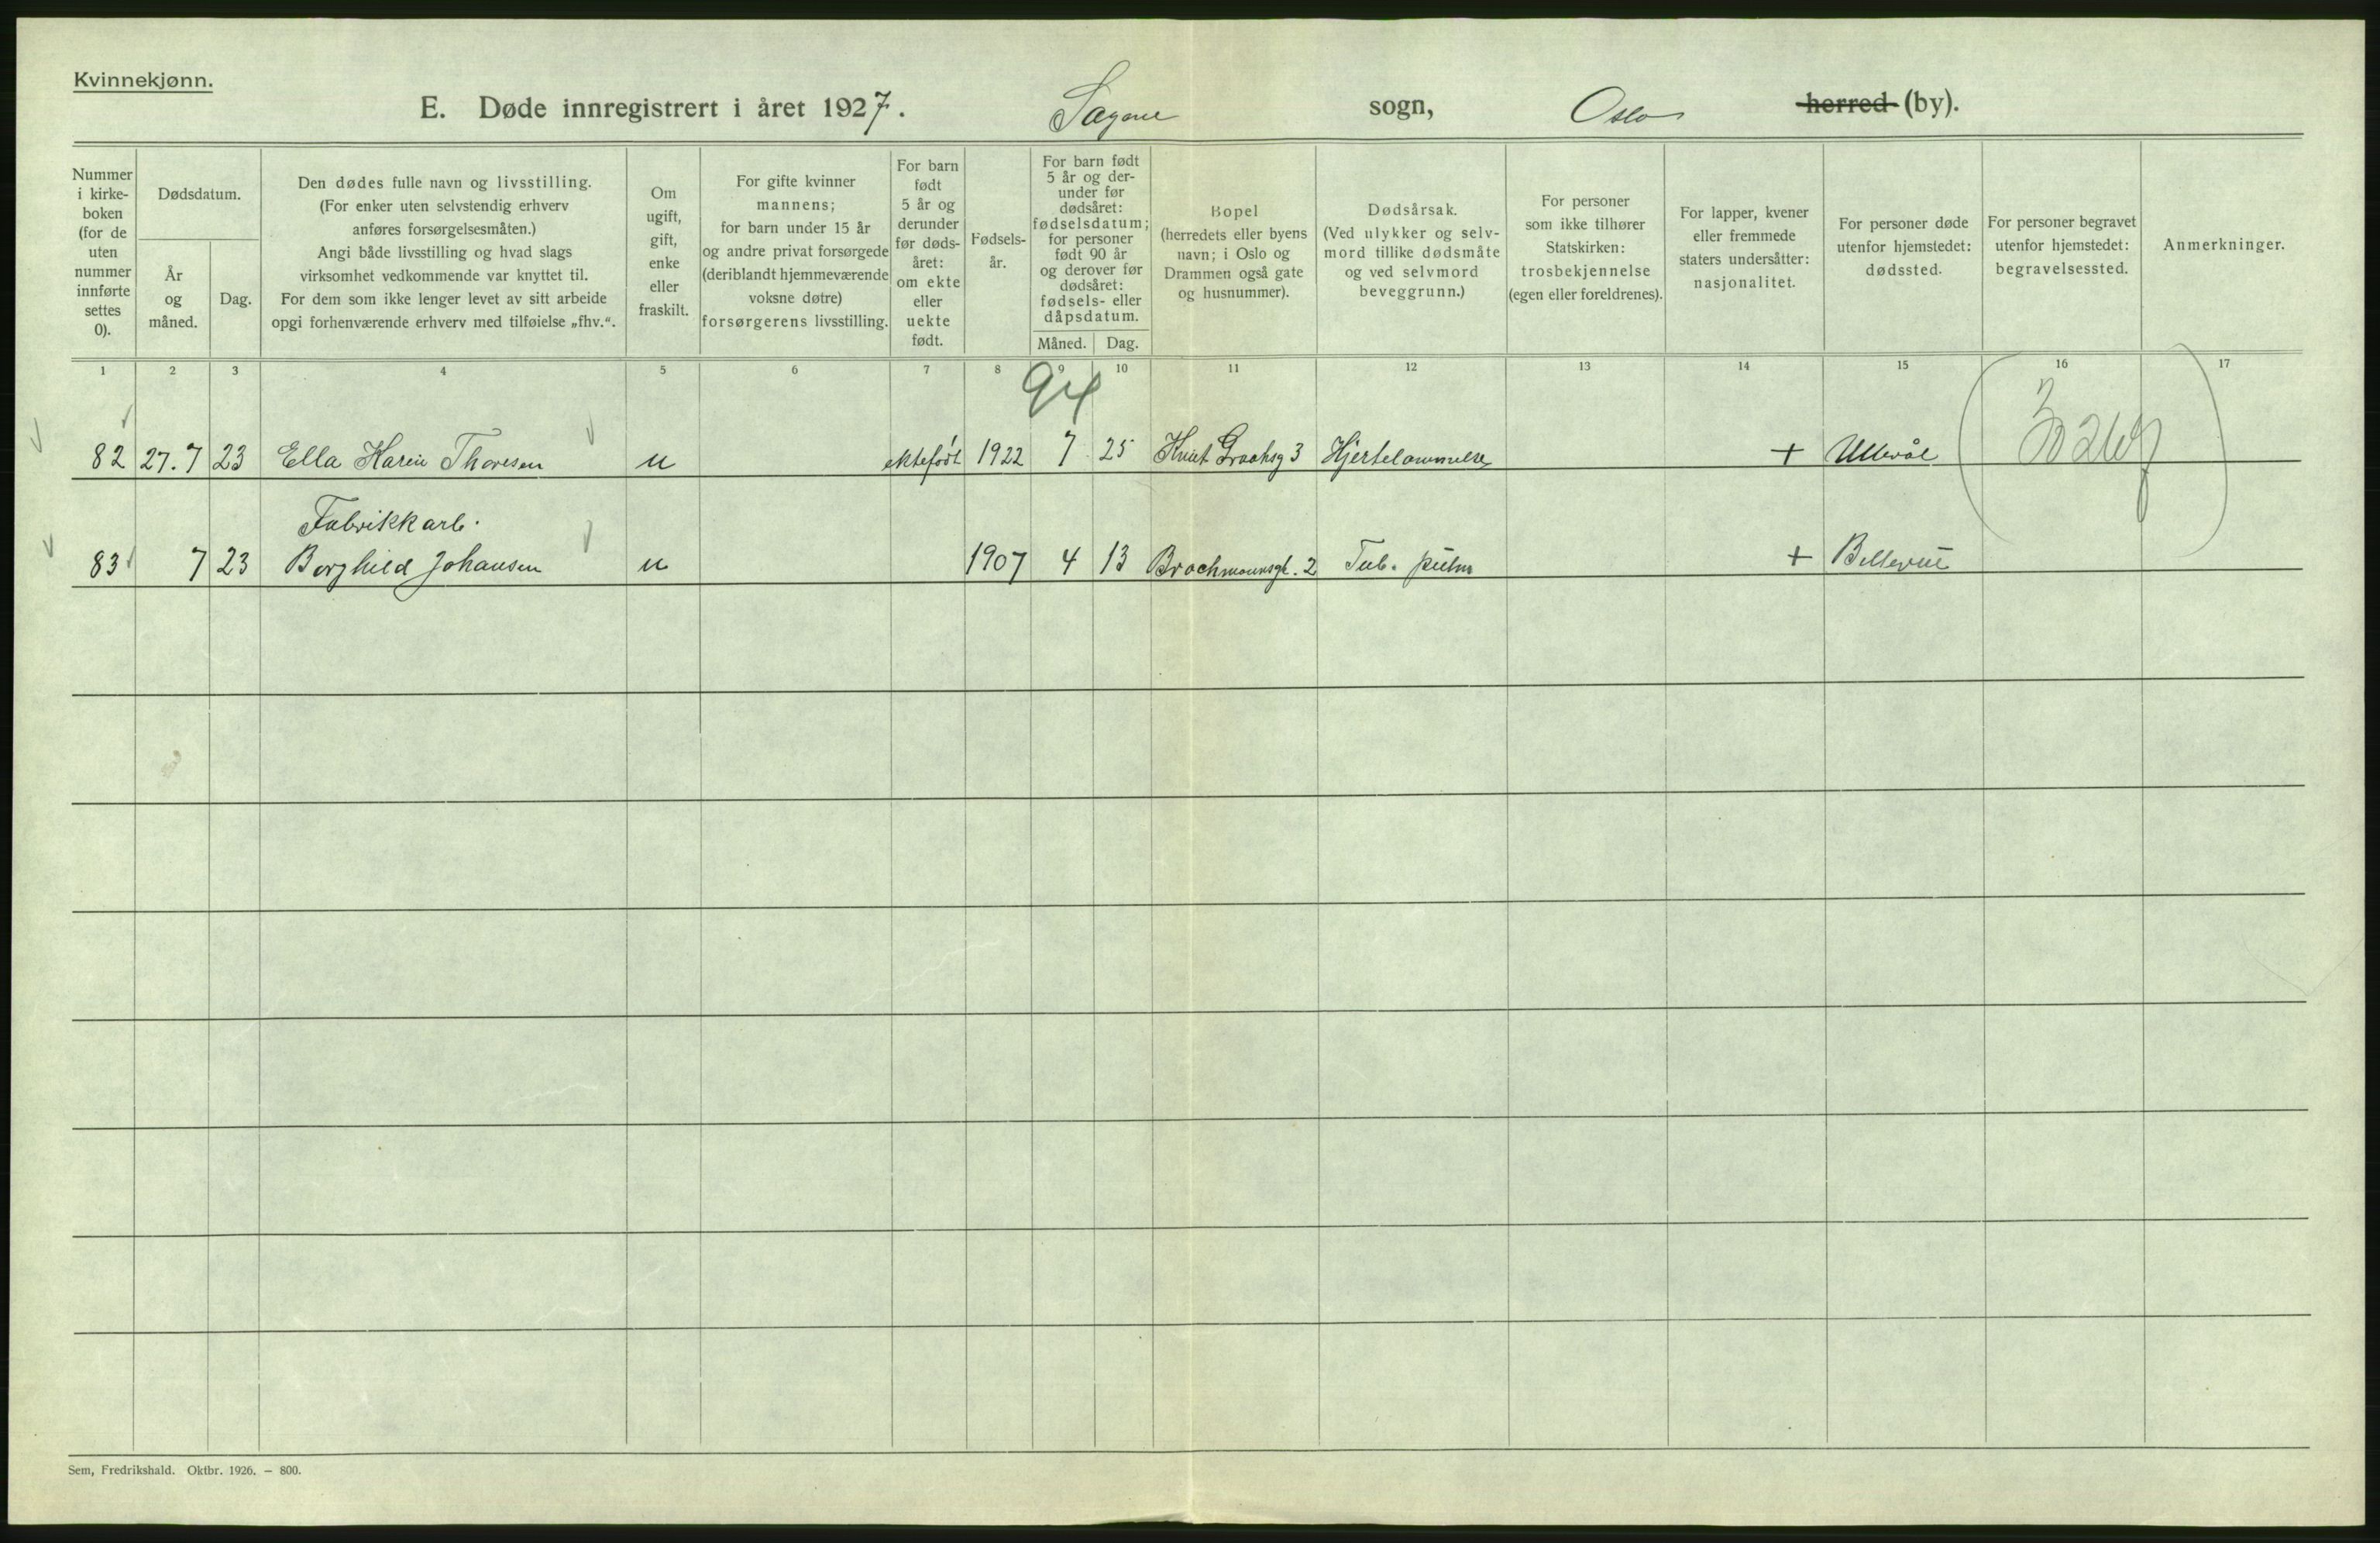 Kvinnekjønn.
E. Døde innregistrert i året 1927. Sagene sogn, Oslo herred (by).
Nummer i kirke-boken (for de uten nummer innførte settes 0).
Dødsdatum.
År og måned.
Dag.
Den dødes fulle navn og livsstilling.
(For enker uten selvstendig erhverv
anføres forsørgelsesmåten.)
Angi både livsstilling og hvad slags
virksomhet vedkommende var knyttet til.
For dem som ikke lenger levet av sitt arbeide
opgi forhenværende erhverv med tilføielse „fhv.“.
Om
ugift,
gift,
enke
eller
fraskilt.
For gifte kvinner
mannens;
for barn under 15 år
og andre privat forsørgede
(deriblandt hjemmeværende
voksne døtre)
forsørgerens livsstilling.
For barn
født
5 år og
derunder
før døds-
året:
om ekte
eller
uekte
født.
Fødsels-
år.
For barn født
5 år og der-
under før
dødsåret:
fødselsdatum;
for personer
født 90 år
og derover før
dødsåret:
fødsels- eller
dåpsdatum.
Måned. Dag.
Bopel
(herredets eller byens
navn; i Oslo og
Drammen også gate
og husnummer).
Dødsårsak.
(Ved ulykker og selv-
mord tillike dødsmåte
og ved selvmord
beveggrunn.)
For personer
som ikke tilhører
Statskirken:
trosbekjennelse
(egen eller foreldrenes).
For lapper, kvener
eller fremmede
staters undersåtter:
nasjonalitet.
For personer døde
utenfor hjemstedet:
dødssted.
For personer begravet
utenfor hjemstedet:
begravelsessted.
Anmerkninger.
1 2 3 4 5 6 7 8 9 10 11 12 13 14 15 16 17
94
82 27.7 23 Ella Karin Thoresen u ektefødt 1922 7 25 Knut Graahsg 3 Hjertelammelse + Ullevål
Fabrikkarb.
83 7 23 Borghild Johansen u 1907 4 13 Brochmannsgt. 2 Tub. pulm + Bellevue
Sem, Fredrikshald. Oktbr. 1926. – 800.